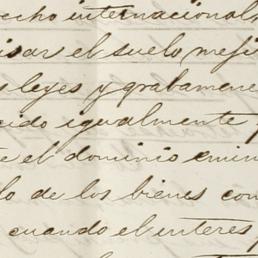 echo internacional,
isar el suelo meji
s leyes y grabamene
cido igualmente p
te el dominio emin
lo de los bienes con
cuando el interes p